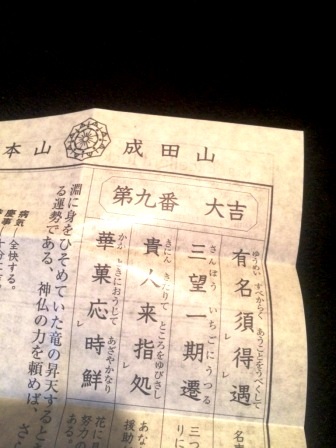 本山 成田山
第九番 大吉
有名須得遇
ゆうめい すべからく あうことをうべくして
三望一期遷
さんぼう いちごにうつる
貴人来指処
きにん きたりて ところをゆびさし
華菓応時鮮
かか ときにおうじて あざやかなり
三つ
りに
あな
援助
花に
努力の
ある。
淵に身をひそめていた竜の昇天すると
る運勢である、神仏の力を頼めば、さ
病気 全快する。
慶事 十分に